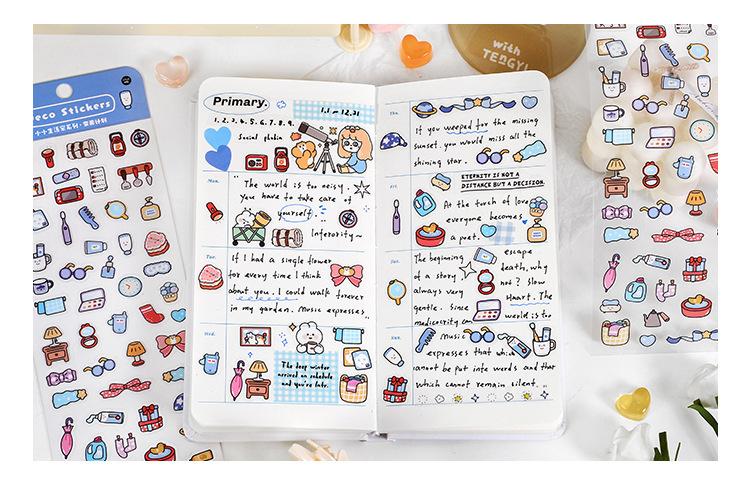 Deco Stickers
with
TENGYI
Primary.
1.1 — 12.31
1. 2. 3. 4. 5. 6. 7. 8. 9.
Social phobia
Mon.
"The world is too noisy.
You have to take care of
yourself."
Inferiority~
Tue.
If I had a single flower
for every time I think
about you. I could walk forever
in my garden. Music expresses..
Wed.
The deep winter
arrived on schedule
and you're late.
Thu.
If you weeped for the missing
sunset. you would miss all the
shining star.
Fri.
ETERNITY IS NOT A
DISTANCE BUT A DECISION.
At the torch of love
everyone becomes
a poet.
Sat.
The beginning
of a story.
always very
gentle. Since
mediocrity can
escape
death, why
not? Slow
Heart. The
world is too
Sun.
Music
expresses that which
cannot be put into words and that
which cannot remain silent..